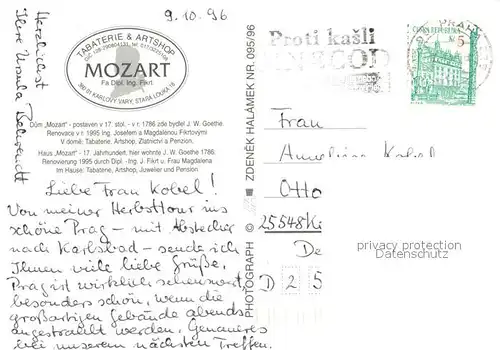 9.10.96
TABATERIE & ARTSHOP
MOZART
Fa Dipl. Ing. Fikrt.
360 01 KARLOVY VARY, STARÁ LOUKA 16
Dům „Mozart" - postaven v 17. stol. - v r. 1786 zde bydlel J. W. Goethe.
Renovace v r. 1995 Ing. Josefem a Magdalenou Fikrtovými
V domě: Tabaterie, Artshop, Zlatnictví a Penzion.
Haus „Mozart" - 17. Jahrhundert, hier wohnte J. W. Goethe 1786.
Renovierung 1995 durch Dipl. -Ing. J. Fikrt u. Frau Magdalena
Im Hause: Tabaterie, Artshop, Juwelier und Pension
Liebe Frau Kobel!
Von meiner Herbsttour ins
schöne Prag – mit Abstecher
nach Karlsbad – sende ich
Ihnen viele liebe Grüße.
Prag ist wirklich sehenswert,
besonders schön, wenn die
großartigen Gebäude abends
angestrahlt werden. Genaueres
bei unserem nächsten Treffen.
Herzlichst
Ihre Ursula Behrendt
PHOTOGRAPH © ZDENĚK HALÁMEK NR. 095/96
Proti kašli
ČESKÁ REPUBLIKA
5
PRAHA
Frau
Kobel
Otto
25548 Ki
De
D 25
privacy protection
Datenschutz